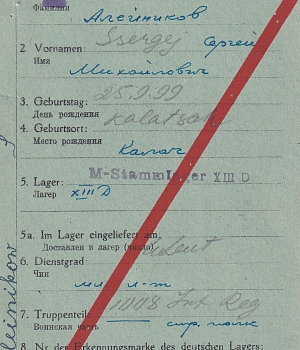 Фамилия Алейников
2 Vornamen: Ssergej Сергей
Имя Михайлович
3. Geburtstag: 25.9.99
День рождения
4. Geburtsort: Kalatsch
Место рождения Калач
5. Lager: M-Stammlager XIII D
Лагерь XIII D
5a. Im Lager eingeliefert am:
Доставлен в лагерь (число)
6. Dienstgrad Leut
Чин мл. л-т
7. Truppenteil: 1008 Inf Reg
Воинская часть стр полк
8. Nr der Erkennungsmarke des deutschen Lagers: